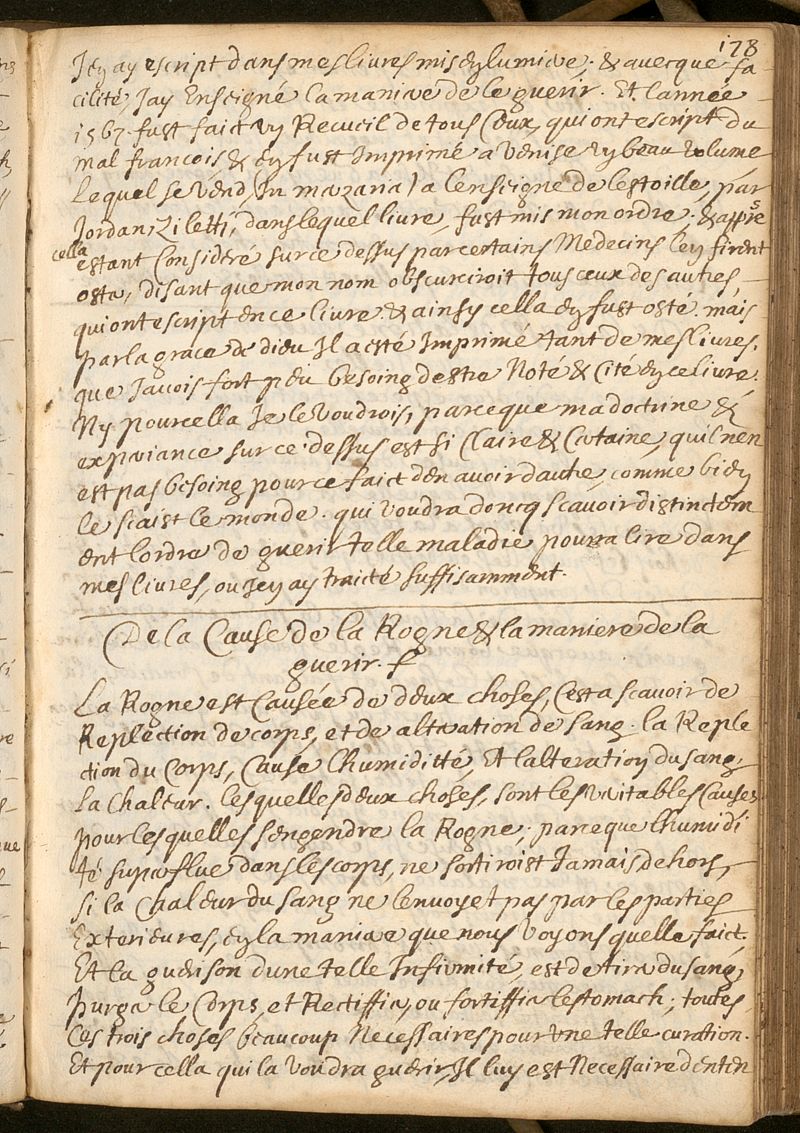 178
Jen ay escript dans mes livres mis en lumiere. & avecque fa-
cilité, Jay Enseigné la maniere de le guerir. Et Lannee
1567. fust faict un Recueil de tous Ceux, qui ont escript du
mal francois & en fust Imprimé a Venise en beau volume
Lequel se vend (In marzaria) a lenseigne de lestoille, par
Jordan Ziletti, dans lequel livre, fust mis mon ordre. & apprs
cella
estant Consideré sur ce dessus par certains Medecins ley firent
oster, disant que mon nom obscurciroit tous ceux des autres,
qui ont escript en ce livre. & ainsy cella en fust osté. mais
par la grace de dieu Il a esté Imprimé tant de mes livres,
que Javois fort peu besoing destre Noté & Cité en ce livre.
Ny pour cella Je le voudrois, parceque ma doctrine &
experiance sur ce dessus est si Claire & Certaine, quil nen
est pas besoing pour ce faict den avoir dautre, comme bien
le scaist le monde. qui voudra doncq scavoir distinctem
ent lordre de guerir telle maladie pourra lire dans
mes livres, ou Jen ay traicté suffisamment.
De la Cause de la Rogne & la maniere de la
guerir.
La Rogne est Causée de deux choses, Cest a scavoir de
Repletion de corps, et de alteration de sang. la Reple
ction du Corps, Cause Lhumiditté, Et lalteration du sang,
La Chaleur. lesquelles deux choses, sont les veritables Causes
pour lesquelles sengendre la Rogne, parceque lhumidi
té superflue dans les corps, ne sortiroist Jamais dehors,
si la Chaleur du sang ne lenvoyet pas par les parties
Exterieures, en la maniere que nous voyons quelle faict.
Et la guerison dune telle Infirmité, est de tirer du sang,
purger le Corps, et Rectiffier, ou fortiffier lestomach; toutes
Ces trois choses beaucoup Necessaires pour une telle curation.
Et pour cella qui la voudra guerir, Il luy est Necessaire denten